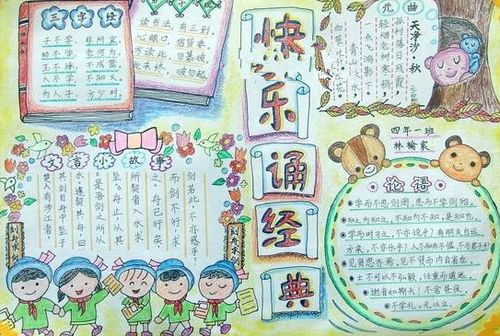 三字经
子不学 非所宜
幼不学 老何为
玉不琢 不成器
人不学 不知义
为人子 方少时
读书法，有三到，
心眼口，信皆要，
方读此，勿慕彼，
此未终，彼勿起。
快乐诵经典
元曲
天净沙·秋
孤村落日残霞
轻烟老树寒鸦
一点飞鸿影下
青山绿水
白草红叶黄花
四年一班
林榆
文言小故事
刻舟求剑
楚人有涉江者，
其剑自舟中坠于
水，遽契其舟，曰
是吾剑之所从
坠。舟止，从其
所契者入水求
之。舟已行矣，
而剑不行，求
剑若此，不亦惑乎！
刻舟求剑
论语
学而不思则罔，思而不学则殆。
知之为知之，不知为不知，是知也。
学而时习之，不亦说乎？有朋自远
方来，不亦乐乎？人不知而不愠，不亦君子乎？
见贤思齐焉，见不贤而内自省也。
士不可以不弘毅，任重而道远。
逝者如斯夫！不舍昼夜。
不学礼，无以立。